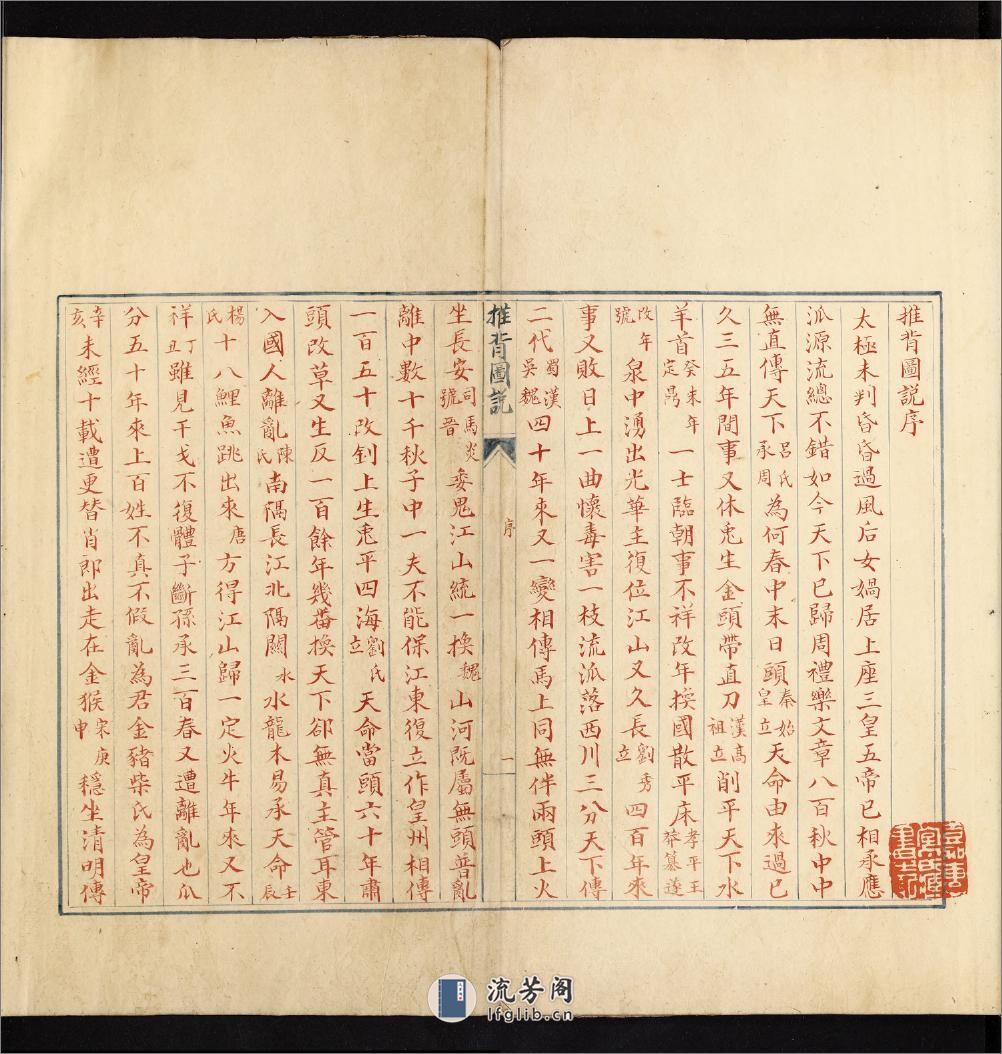 推背圖說序
太極未判昏昏過風后女媧居上座三皇五帝已相承應
派源流總不錯如今天下已歸周禮樂文章八百秋中中
無直傳天下呂氏承周為何春中末日頭秦始皇立天命由來過已
久三五年間事又休兎生金頭帶直刀漢高祖立削平天下水
羊首癸未年定鼎一士臨朝事不祥改年換國散平床孝平王莽篡逢
改年號泉中湧出光華主復位江山又久長劉秀立四百年來
事又敗日上一曲懷毒害一枝流派落西川三分天下傳
二代蜀漢吳魏四十年來又一變相傳馬上同無伴兩頭上火
推背圖說
序
一
坐長安司馬炎號晉委鬼江山統一換魏山河既屬無頭普亂
離中數十千秋子中一夫不能保江東復立作皇州相傳
一百五十改釗上生兎平四海劉氏立天命當頭六十年肅
頭改草又生反一百餘年幾番換天下卻無真主管耳東
入國人離亂陳氏南隅長江北隅關水水龍木易承天命壬辰
楊氏十八鯉魚跳出來唐方得江山歸一定火牛年來又不
祥丁丑雖見干戈不復體子斷孫承三百春又遭離亂也瓜
分五十年來上百姓不真不假亂為君金豬柴氏為皇帝
辛亥未經十載遭更替肖郎出走在金猴宋庚申穩坐清明傳
流芳阁
lfglib.cn